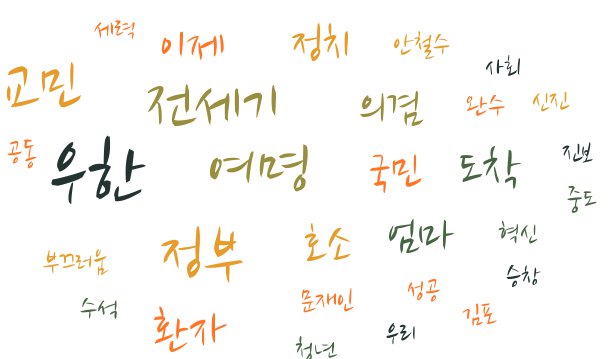 세력
이제
정치
안철수
사회
교민
전세기
의겸
완수
신진
공동
우한
여명
국민
도착
진보
중도
부끄러움
정부
호소
엄마
혁신
승창
수석
환자
문재인
성공
김포
청년
우리